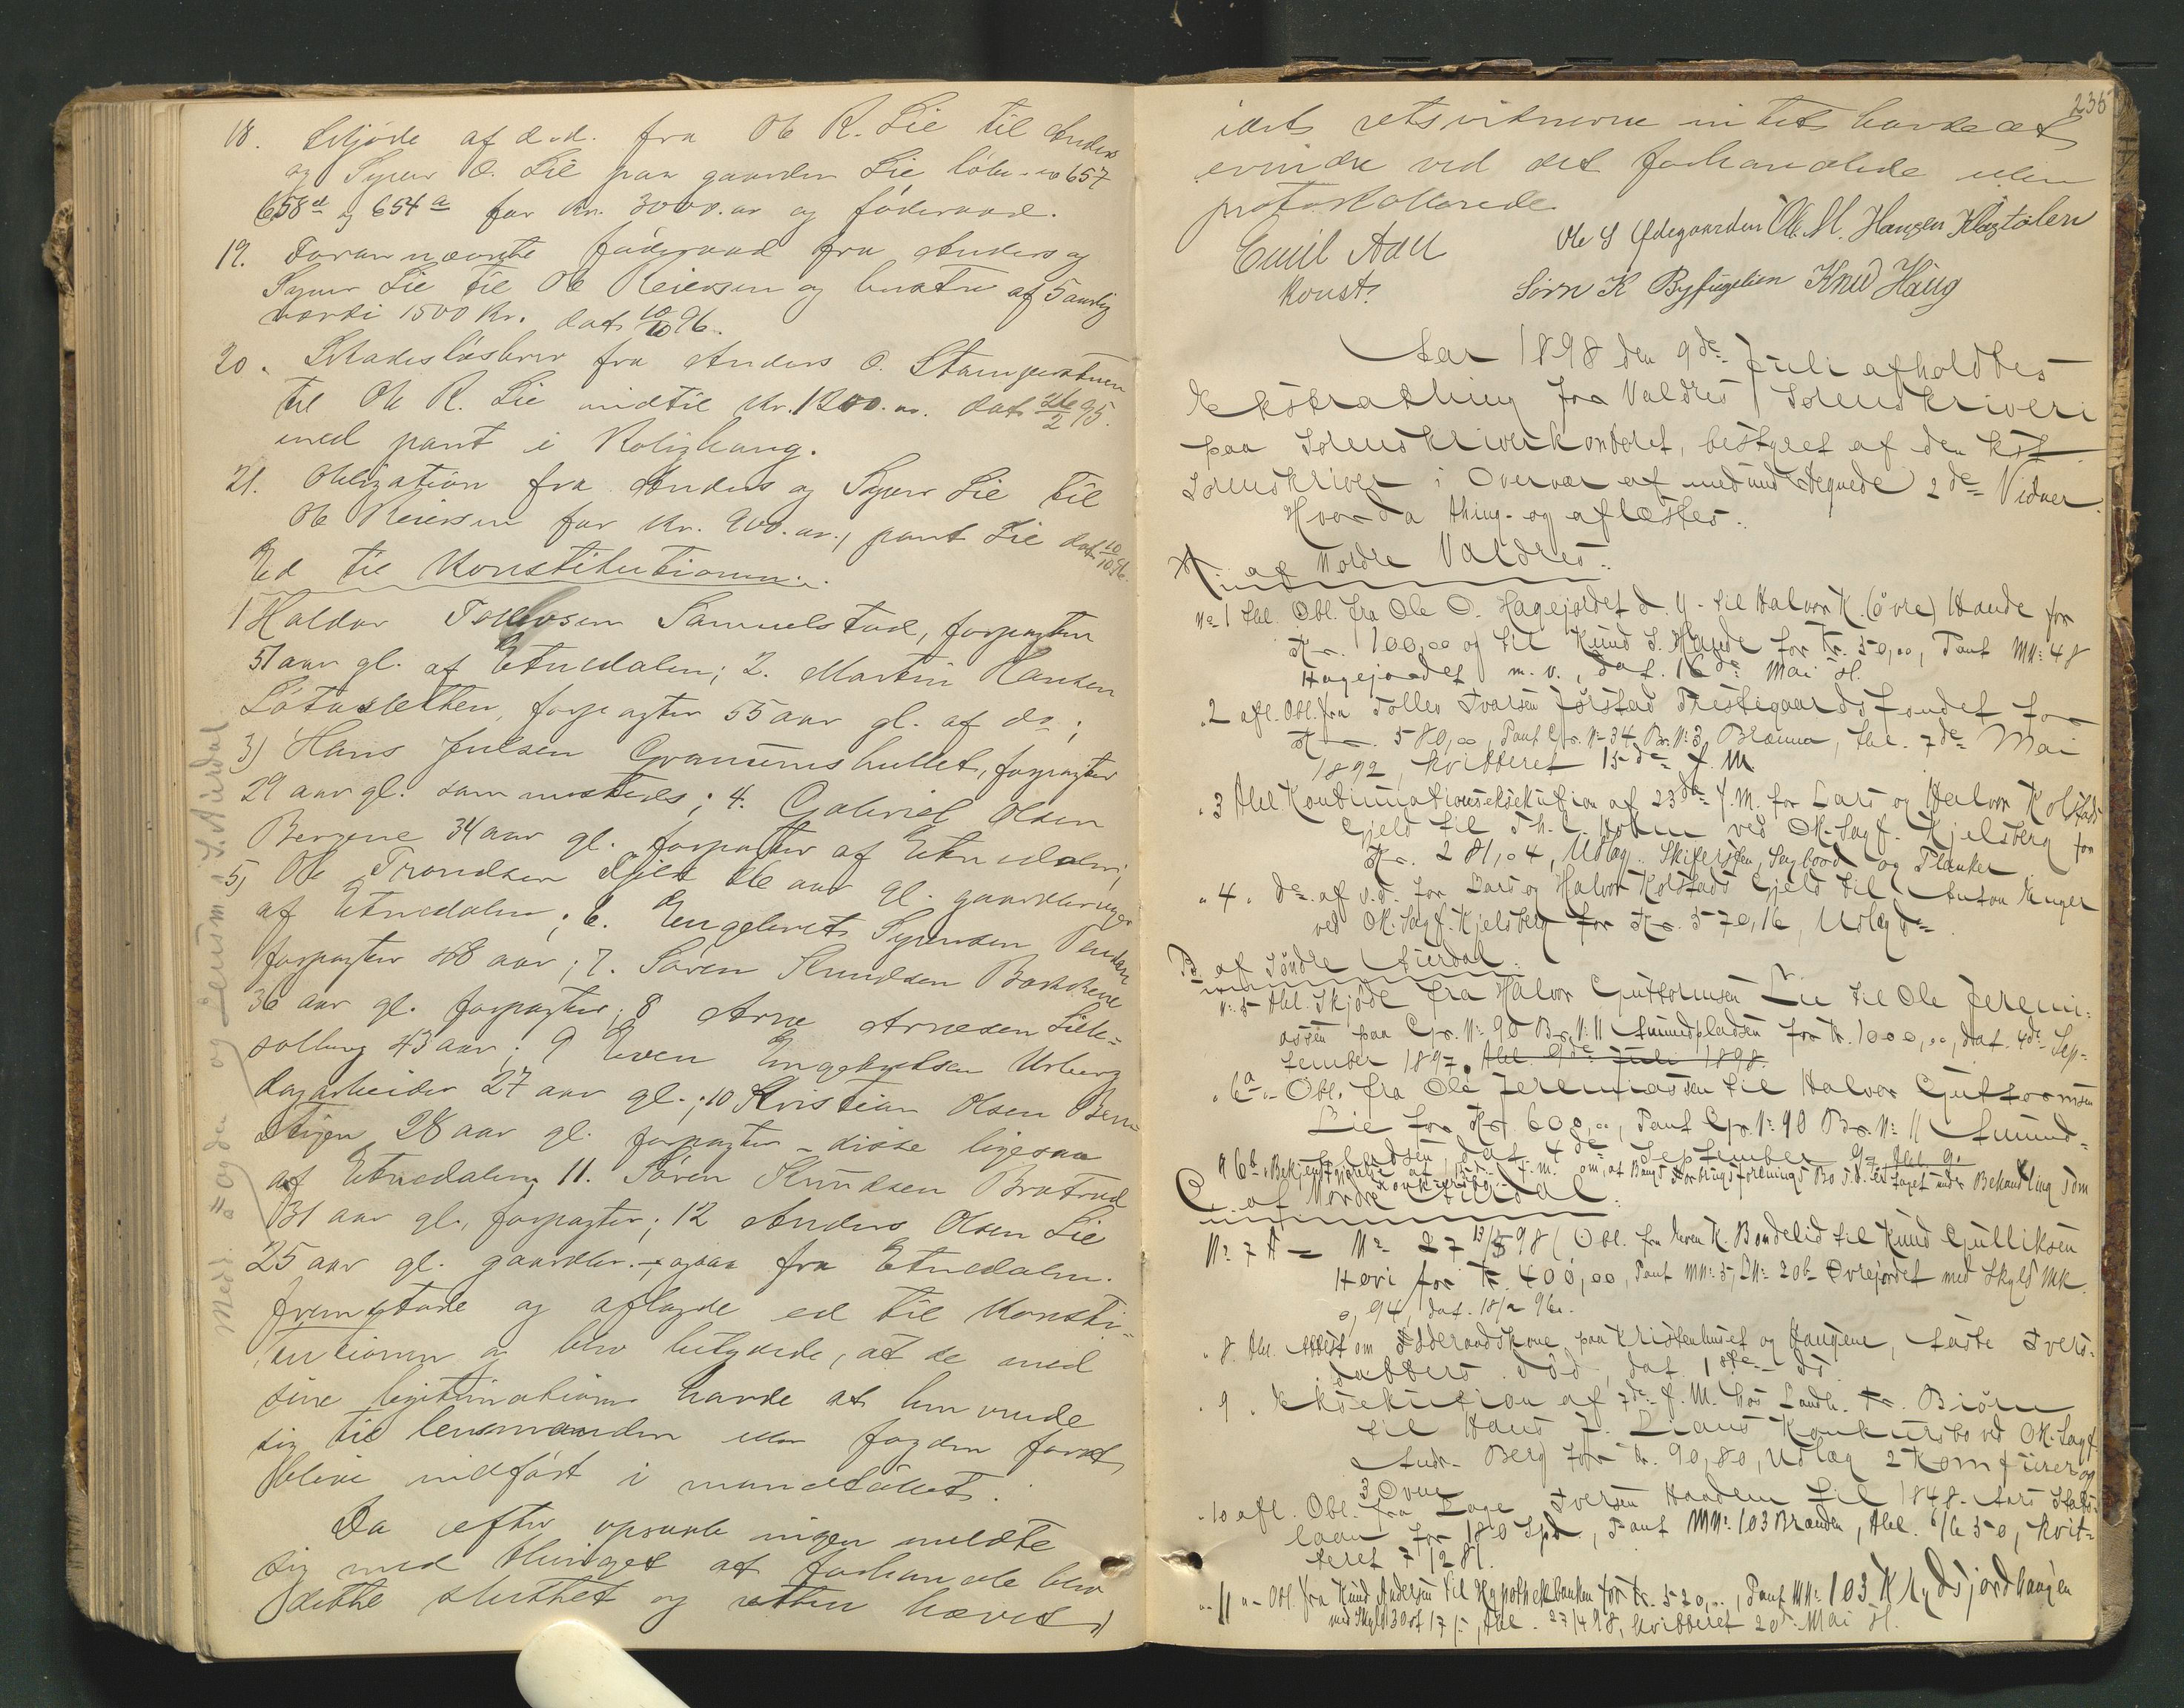 18. Skjøde af d.d. fra Ole R. Lie til Anders
og Syver O. Lie paa gaarden Lie løbe-no 657
658 d og 654 a for Kr. 3000.00 og føderaad.
19. Foran nævnte føderaad fra Anders og
Syver Lie til Ole Reiersen og hustru af 5 aarlig
værdi 1500 Kr. dat. 10/10 96.
20. Skadesløsbrev fra Anders O.
til Ole R. Lie indtil Kr. 1200.00. dat. 26/2 95.
med pant i Kolighaug.
21. Obligation fra Anders og Syver Lie til
Ole Reiersen for Kr. 900.00, pant Lie dat. 10/10 96.
Ed til Konstitutionen.
1 Haldor Samuelstad, forpagter
51 aar gl. af Etnedalen; 2. Martin Hansen
forpagter 55 aar gl. af do;
3) Hans Julsen forpagter
29 aar gl. sammesteds; 4. Gabriel Olsen
Bergene 34 aar gl. forpagter af Etnedalen;
5) Ole Trondsen 26 aar gl. gaardbruger
af Etnedalen; 6. Engebret Syversen
forpagter 48 aar; 7. Søren Knudsen
36 aar gl. forpagter; 8 Arne Arnesen
43 aar; 9 Even Engebretsen
dagarbeider 27 aar gl.; 10 Kristian Olsen
28 aar gl. forpagter – disse ligesaa
af Etnedalen, 11. Søren Knudsen Bratrud
31 aar gl., forpagter; 12 Anders Olsen Lie
25 aar gl. gaardbr. – ogsaa fra Etnedalen.
fremstode og aflagde ed til Konsti-
tutionen og blev betydede, at de med
sine legitimationer havde at henvende
sig til lensmanden eller fogden forat
blive indført i mandtallet.
Da efter opraab ingen meldte
sig med thinget at forhandle blev
dette sluttet og retten hævet
Medd. Fogden og Lensm. i S. Aurdal
235
idet retsvitnerne intet havde at
erindre ved det forhandlede eller
protokollerede.
Emil Aall
Konst.
Ole S Ødegaarden Ole M. Hansen Klastølen
Søren K Byfuglien Knud Haug
Aar 1898 den 9de Juli afholdtes
Ekstrathing for Valdres Sorenskriveri
paa Sorenskriverkontoret, bestyret af den kst.
Sorenskriver i Overvær af medundertegnede 2de Vidner.
Hvorda thing- og aflæstes.
A. af Nordre Valdres.
No 1 thl. Obl. fra Ole O. Hagejordet d. y. til Halvor K. (øvre) Hande for
Kr. 100,00 og til Knud S. Hande for Kr. 50,00, Pant MN: 48
Hagejordet m.v., dat. 16de Mai sl.
" 2 afl. Obl. fra Tollev Ivarsen Jørstad Prestegaardsfondet for
Kr. 580,00, Pant Gr. No 34 Br. No 3, Brænna, thl. 7de Mai
1892, kvitteret 15de f. M.
" 3 thl. Kontinuationseksekution af 23de f.M. for Lars og Halvor Kolstads
Gjeld til Th. C. Holm ved OR.Sagf. Kjelsberg for
Kr. 281,04, Udlæg. Skifersten, Sagbord og Planker
" 4. do. af s.d. for Lars og Halvor Kolstads Gjeld til Anton Enger
ved OR.Sagf. Kjelsberg for Kr. 570,16, Udlæg do
B. af Søndre Aurdal.
No 5 thl. Skjøde fra Halvor Guttormsen Lie til Ole Jeremi-
assen paa Gr. No 90 Br. No 11 Amundpladsen for Kr. 1000,00, dat. 4de Sep-
tember 1897. thl. 9de Juli 1898.
" 6a " Obl. fra Ole Jeremiassen til Halvor Guttormsen
Lie for Kr. 600,00, Pant Gr. No 90 Br. No 11 Amund-
pladsen, dat. 4de September 97 thl. 9.
" 6b " Bekjendtgjørelse af 15de f.m. om, at Bangs Forbrugsforenings Bo s.d. er taget under Behandling som
Konkursbo.
C. af Nordre Aurdal.
No 7 A = No 27 13/5 98 ( Obl. fra Even K. Bondelid til Knud Gulliksen
Hovi for Kr. 400,00, Pant MN: 5, LN: 20b Øvrejordet med Skyld Mk.
0,94, dat. 18/2 96.
" 8. thl. Attest om Føderaadskone paa Kristenhuset og Haugene, Aaste Ivers-
datters Død, dat. 1ste ds
" 9. Eksekution af 7de f.M. hos Landh. Kr. Bjørn
til Hans J. Lians Konkursbo ved OR.Sagf.
Andr. Berg for Kr. 90,80, Udlæg 2 Komfurer og
3 Ovne
" 10 afl. Obl. fra Lage Iversen Haadem til 1848 Aars Stats-
laan for 180 Spd., Pant MN: 103 Brænden, thl. 6/6 50, kvit-
teret 7/12 81.
" 11 " Obl. fra Knud Andersen til Hypothekbanken for Kr. 520,00, Pant MN: 103 K
med Skyld 30 ort 17 s, thl. 27/4 98, kvitteret 20de Mai sl.